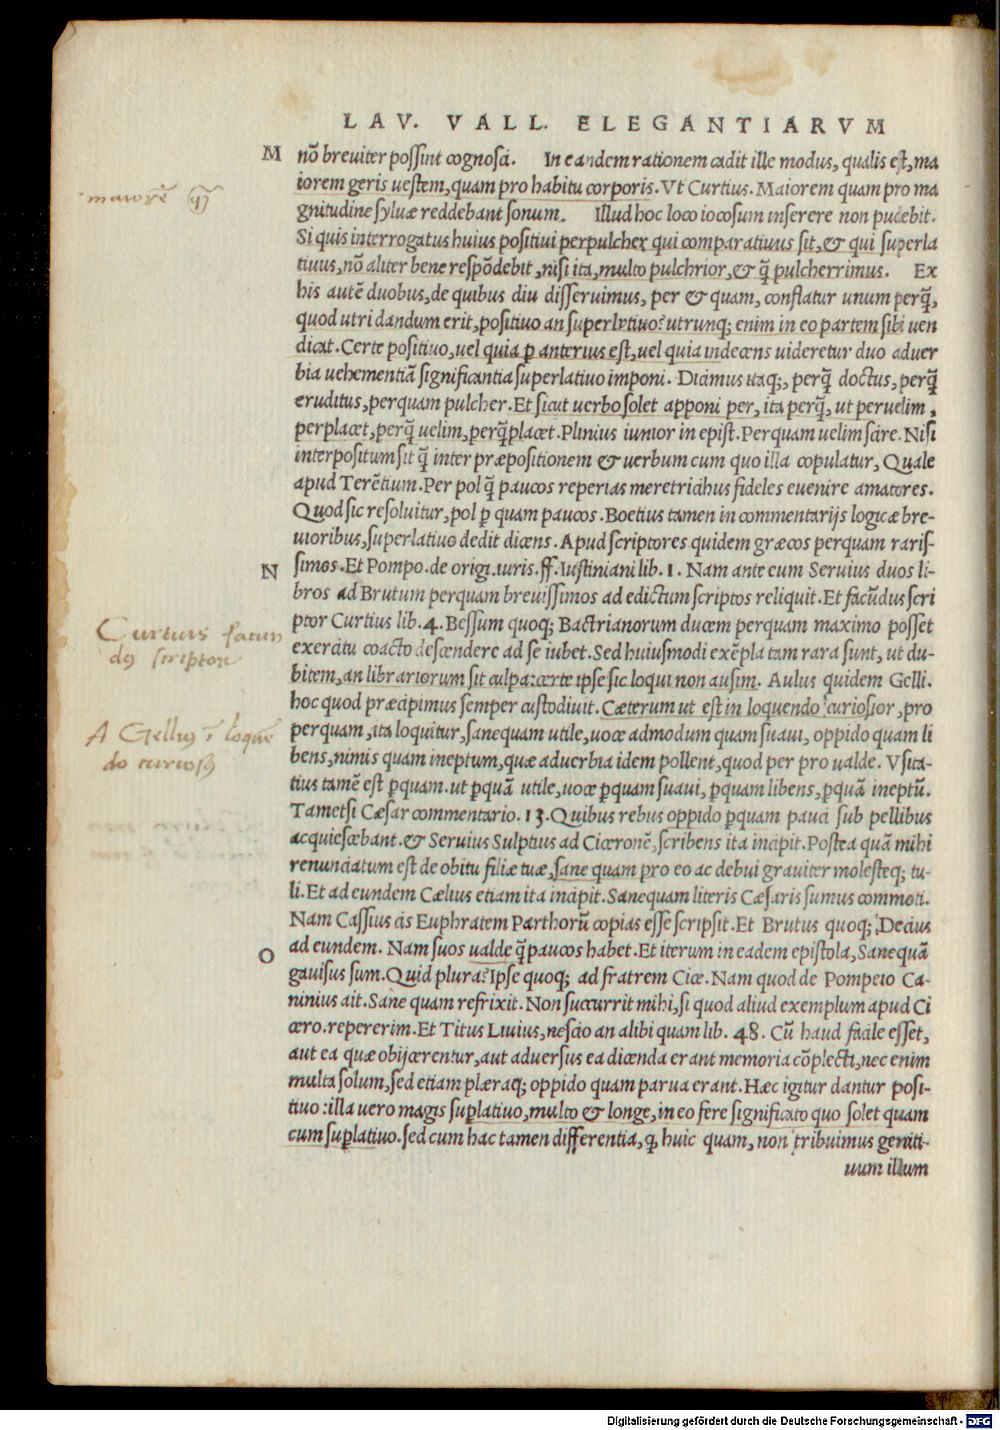 LAV. VALL. ELEGANTIARVM
M nõ breuiter possint cognosci. In eandem rationem cadit ille modus, qualis est, ma
iorem geris uestem, quam pro habitu corporis. Vt Curtius. Maiorem quam pro ma
maiorẽ q̃
gnitudine syluæ reddebant sonum. Illud hoc loco iocosum inserere non pudebit.
Si quis interrogatus huius positiui perpulcher qui comparatiuus sit, & qui superla
tiuus, nõ aliter bene respõdebit, nisi ita, multo pulchrior, & q̃ pulcherrimus. Ex
his autẽ duobus, de quibus diu disseruimus, per & quam, conflatur unum perq̃,
quod utri dandum erit, positiuo an superlatiuo? utrunq; enim in eo partem sibi uen
dicat. Certe positiuo, uel quia ꝑ anterius est, uel quia indecens uideretur duo aduer
bia uehementiã significantia superlatiuo imponi. Dicimus itaq;, perq̃ doctus, perq̃
eruditus, perquam pulcher. Et sicut uerbo solet apponi per, ita perq̃, ut peruelim,
perplacet, perq̃ uelim, perq̃ placet. Plinius iunior in epist. Perquam uelim scire. Nisi
interpositum sit q̃ inter præpositionem & uerbum cum quo illa copulatur, Quale
apud Terẽtium. Per pol q̃ paucos reperias meretricibus fideles euenire amatores.
Quod sic resoluitur, pol ꝑ quam paucos. Boetius tamen in commentarijs logicæ bre-
uioribus, superlatiuo dedit dicens. Apud scriptores quidem græcos perquam raris-
N simos. Et Pompo. de origi. iuris. ff. Iustiniani lib. 1. Nam ante eum Seruius duos li-
bros ad Brutum perquam breuissimos ad edictum scriptos reliquit. Et facũdus scri
ptor Curtius lib. 4. Bessum quoq; Bactrianorum ducem perquam maximo posset
Curtius facun
dꝯ scriptor
exercitu coacto descendere ad se iubet. Sed huiusmodi exẽpla tam rara sunt, ut du-
bitem, an librariorum sit culpa: certe ipse sic loqui non ausim. Aulus quidem Gelli.
hoc quod præcipimus semper custodiuit. Cæterum ut est in loquendo curiosior, pro
perquam, ita loquitur, sanequam utile, uoce admodum quam suaui, oppido quam li
A Gelliꝯ ĩ loquẽ
do curiosꝯ
bens, nimis quam ineptum, quæ aduerbia idem pollent, quod per pro ualde. Vsita-
tius tamẽ est ꝑquam. ut ꝑquã utile, uoce ꝑquam suaui, ꝑquam libens, ꝑquã ineptũ.
Tametsi Cæsar commentario. 13. Quibus rebus oppido ꝑquam pauci sub pellibus
acquiescebant. & Seruius Sulptius ad Ciceronẽ, scribens ita incipit. Postea quã mihi
renunciatum est de obitu filiæ tuæ, sane quam pro eo ac debui grauiter molesteq; tu-
li. Et ad eundem Cælius etiam ita incipit. Sanequam literis Cæsaris sumus commoti.
Nam Cassius cis Euphratem Parthorũ copias esse scripsit. Et Brutus quoq; Decius
O ad eundem. Nam suos ualde q̃ paucos habet. Et iterum in eadem epistola, Sanequã
gauisus sum. Quid plura? Ipse quoq; ad fratrem Cice. Nam quod de Pompeio Ca-
ninius ait. Sane quam refrixit. Non succurrit mihi, si quod aliud exemplum apud Ci
cero. repererim. Et Titus Liuius, nescio an alibi quam lib. 48. Cũ haud facile esset,
aut ea quæ obijcerentur, aut aduersus ea dicenda erant memoria cõplecti, nec enim
multa solum, sed etiam plæraq; oppido quam parua erant. Hæc igitur dantur posi-
tiuo: illa uero magis suꝑlatiuo, multo & longe, in eo fere significato quo solet quam
cum suꝑlatiuo. sed cum hac tamen differentia, ꝙ huic quam, non tribuimus geniti-
uum illum
Digitalisierung gefördert durch die Deutsche Forschungsgemeinschaft - DFG